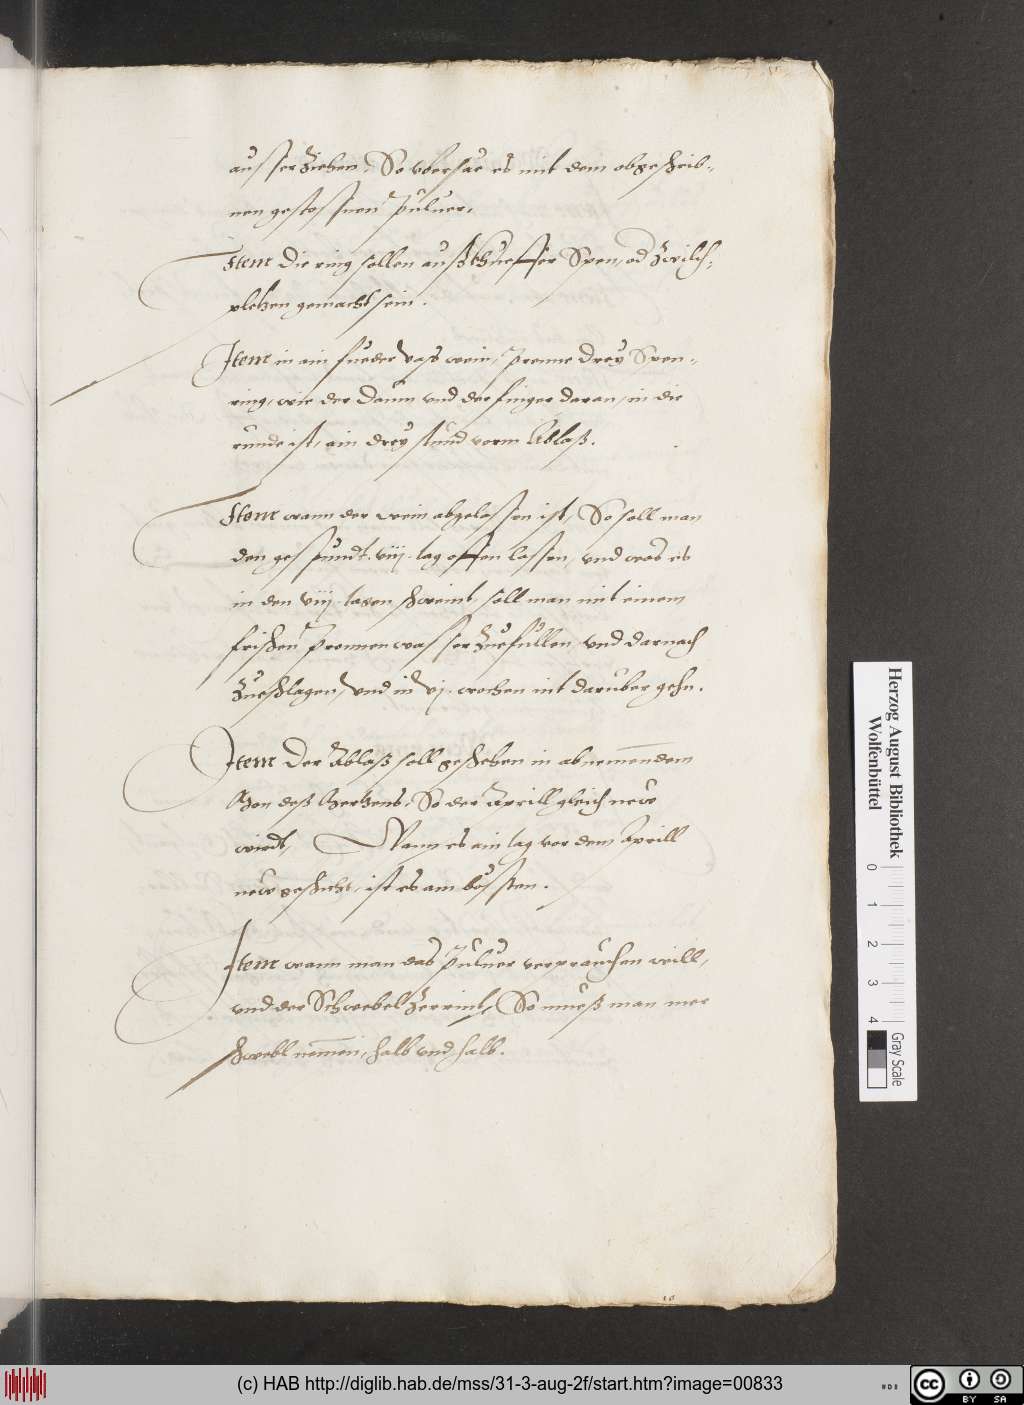 ausser Ziehen, So vbersae es mit dem obgeschrib-,
nen gestossnen Puluer,
Item die ring sollen auß khueffer Spen, od Zwilch,
pletzen gemacht sein.
Item in ain fueder vass wein, Prenne drey Spen-,
ring, wie der Daum vnd der finger daran, in die
runde ist, ain drey stund vorm Ablaß.
Item wann der wein abgelassen ist, So soll man
den gespundt viij. tag offen lassen, vnd was es
in den viij. tagen schweint, soll man mit einem
frischen Prennenwasser Zuefullen, vnd darnach
Zueschlagen, vnd in vj. wochen nit daruber gehn.
Item Der Ablaß soll geschehen in abnemendem
Mon deß Mertzens, So der Aprill gleich new
wirdt, Wann es ain tag vor dem Aprill
new geschicht, ist es am bössten.
Item wann man das Puluer verprauchen will,
vnd der Schwebel Zerrint, So mueß man mer
schwebl nemen, halb vnd halb.
Herzog August Bibliothek
Wolfenbüttel
0 1 2 3 4
Gray Scale
(c) HAB http://diglib.hab.de/mss/31-3-aug-2f/start.htm?image=00833
cc BY SA